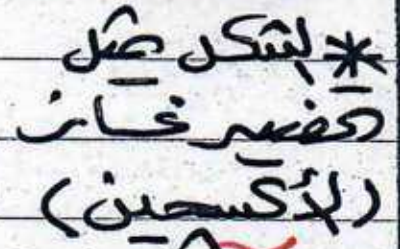 * الشكل يمثل
تحضير غاز
(الأكسجين)